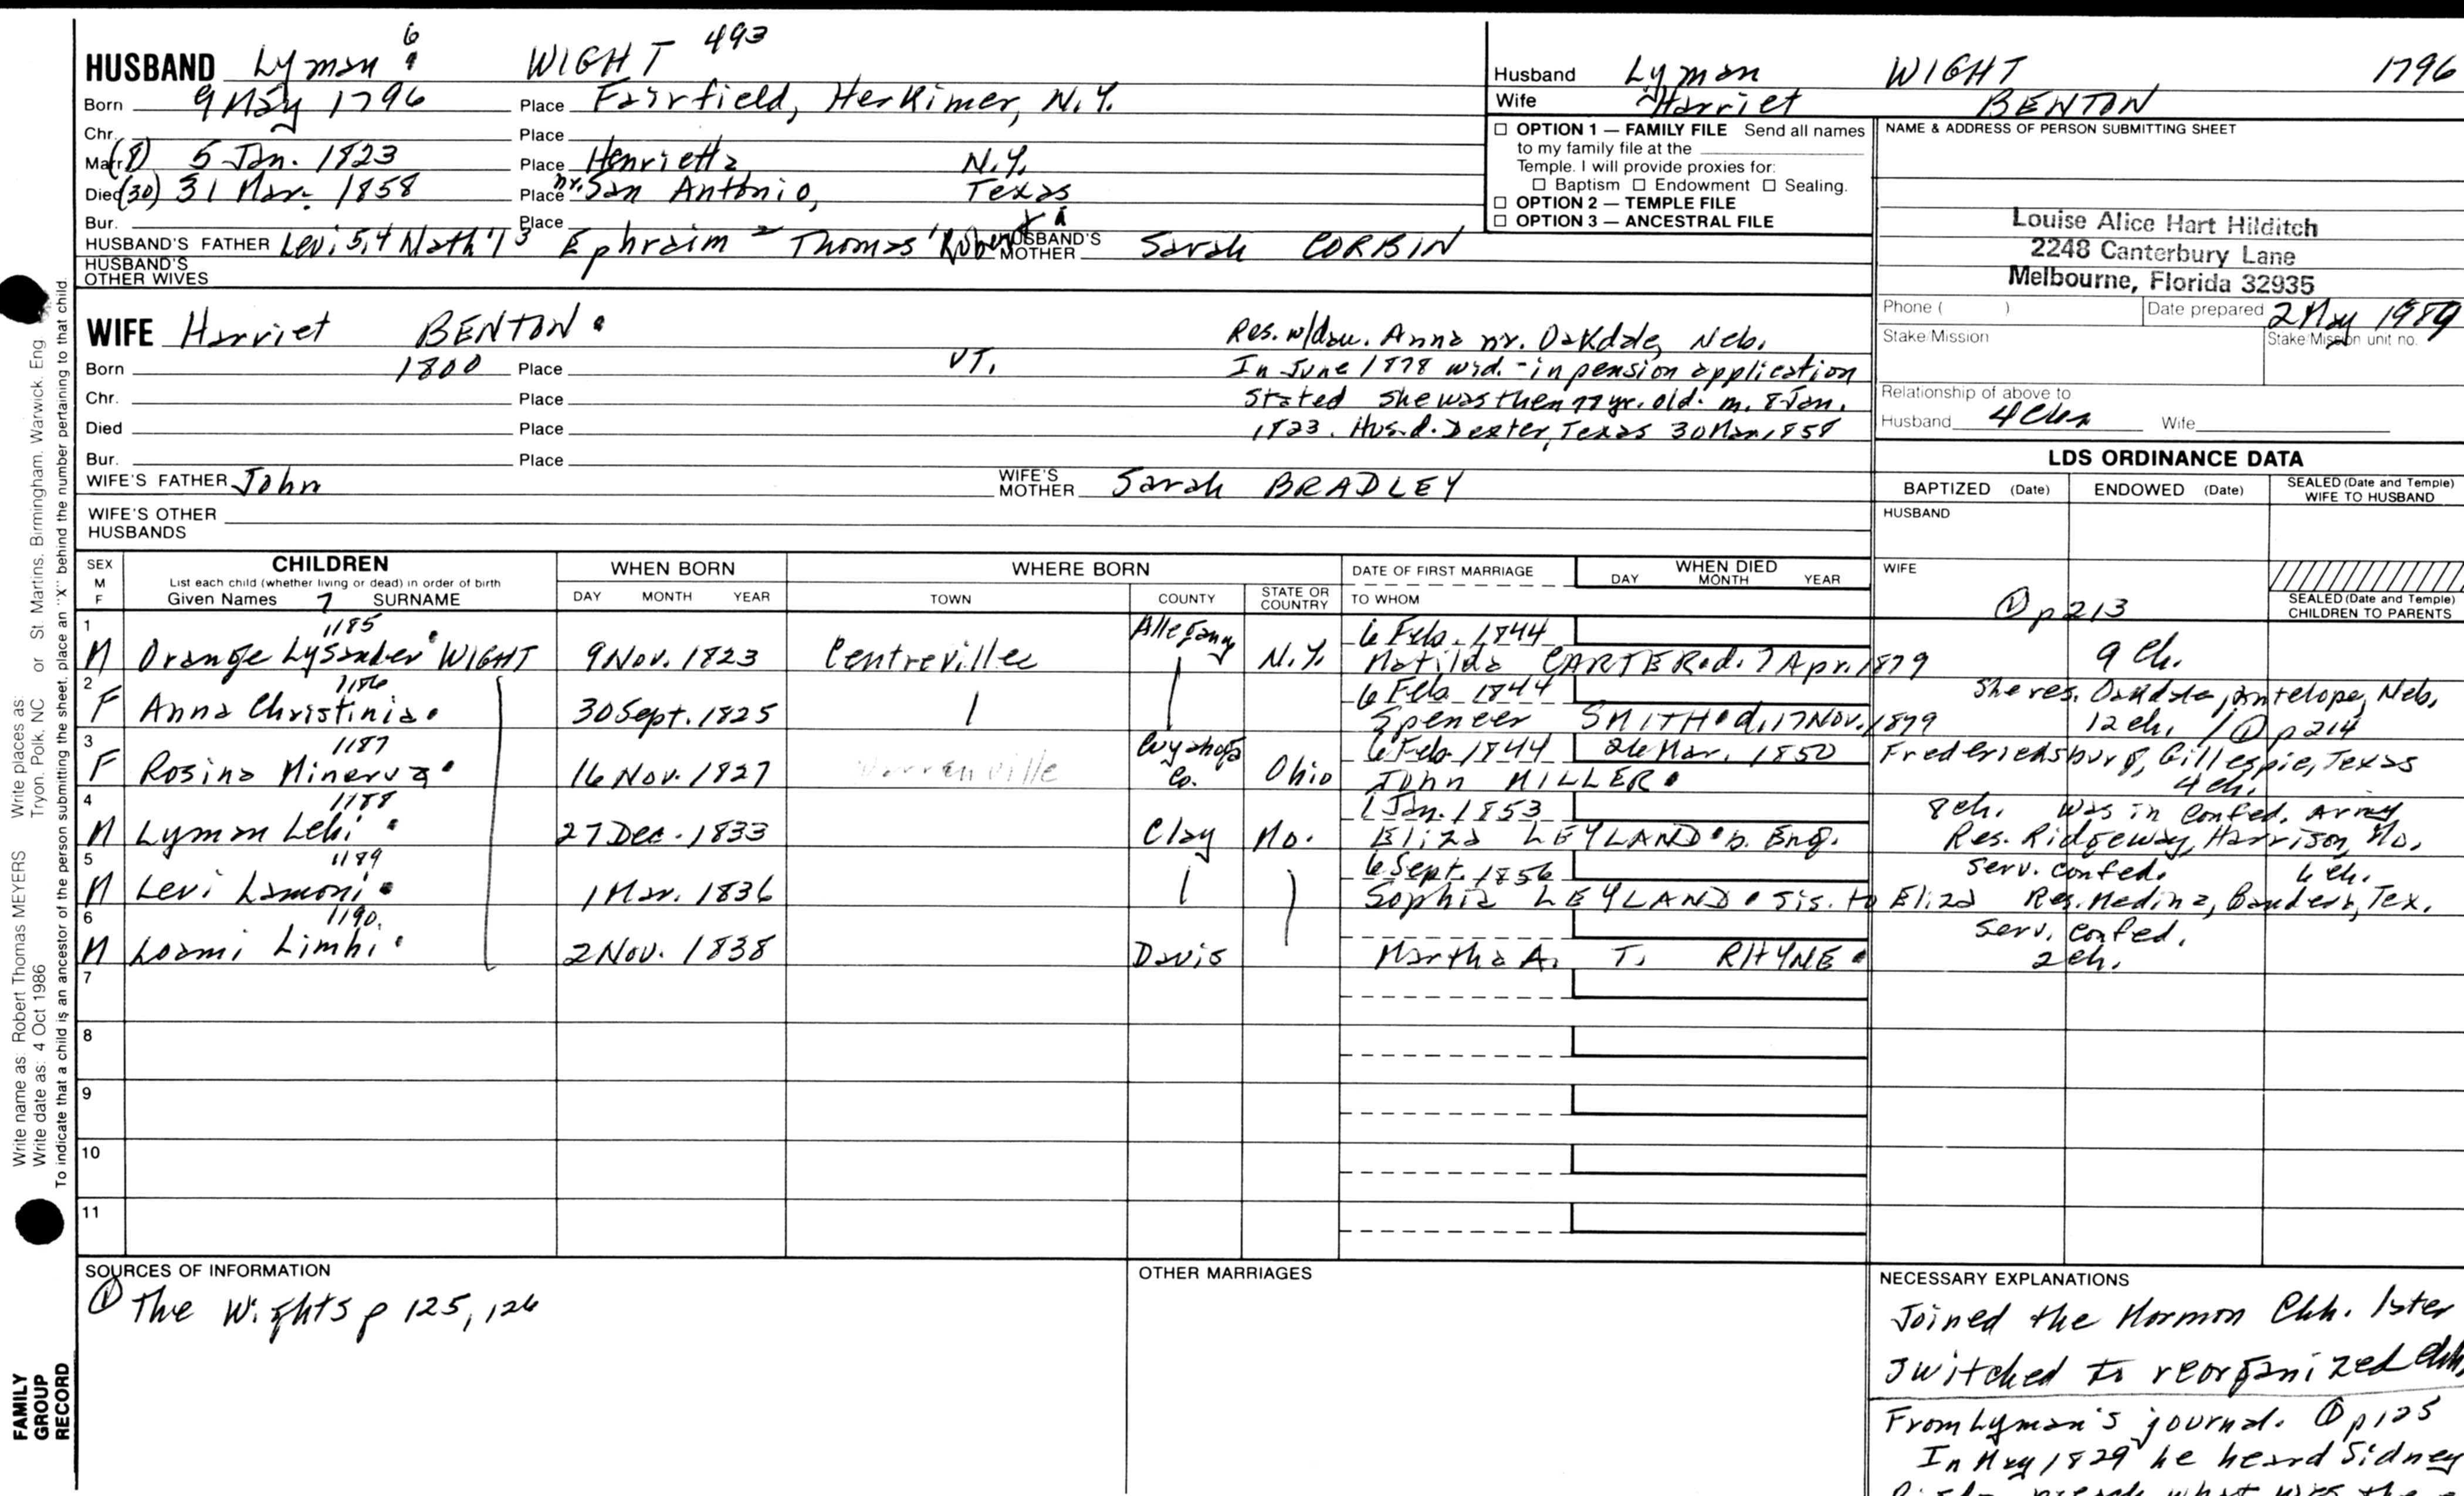 HUSBAND Lyman 6 WIGHT 493
Born 9 May 1796 Place Fairfield, Herkimer, N.Y.
Chr. Place
Marr. (8) 5 Jan. 1823 Place Henrietta N.Y.
Died (30) 31 Mar. 1858 Place nr. San Antonio, Texas
Bur. Place
HUSBAND'S FATHER Levi 5, 4 Nath'l 3 Ephraim 2 Thomas 1 Robert HUSBAND'S MOTHER Sarah CORBIN
HUSBAND'S OTHER WIVES
WIFE Harriet BENTON
Born 1800 Place VT.
Chr. Place
Died Place
Bur. Place
Res. w/dau. Anna nr. Oakdale, Neb.
In June 1878 wid. - in pension application
Stated she was then 77 yr. old. m. 8 Jan.
1823. Hus. d. Dexter, Texas 30 Mar. 1858
WIFE'S FATHER John WIFE'S MOTHER Sarah BRADLEY
WIFE'S OTHER HUSBANDS
Husband Lyman WIGHT 1796
Wife Harriet BENTON
☐ OPTION 1 — FAMILY FILE Send all names
to my family file at the
Temple. I will provide proxies for:
☐ Baptism ☐ Endowment ☐ Sealing.
☐ OPTION 2 — TEMPLE FILE
☐ OPTION 3 — ANCESTRAL FILE
NAME & ADDRESS OF PERSON SUBMITTING SHEET
Louise Alice Hart Hilditch
2248 Canterbury Lane
Melbourne, Florida 32935
Phone ( ) Date prepared 2 May 1989
Stake/Mission Stake/Mission unit no.
Relationship of above to
Husband Wife
LDS ORDINANCE DATA
BAPTIZED (Date) ENDOWED (Date) SEALED (Date and Temple) WIFE TO HUSBAND
HUSBAND
WIFE
SEALED (Date and Temple) CHILDREN TO PARENTS
① p 213
SEX M F CHILDREN List each child (whether living or dead) in order of birth Given Names 7 SURNAME
WHEN BORN DAY MONTH YEAR
WHERE BORN TOWN COUNTY STATE OR COUNTRY
DATE OF FIRST MARRIAGE TO WHOM
WHEN DIED DAY MONTH YEAR
1 1185 Allegany 6 Feb. 1844
M Orange Lysander WIGHT 9 Nov. 1823 Centreville N.Y. Matilda CARTER d. 7 Apr. 1879 9 Ch.
2 1186 6 Feb. 1844 She res. Oakdale, Antelope, Neb.
F Anna Christinia 30 Sept. 1825 Spencer SMITH d. 17 Nov. 1879 12 ch. / ① p 214
3 1187 Cuyahoga Co. 6 Feb. 1844 26 Mar. 1850 Fredericksburg, Gillespie, Texas
F Rosina Minerva 16 Nov. 1827 Warrenville Ohio John MILLER 4 ch.
4 1188 1 Jan. 1853 8 ch. Was in Confed. Army
M Lyman Lehi 27 Dec. 1833 Clay Mo. Eliza LEYLAND b. Eng. Res. Ridgeway, Harrison, Mo.
5 1189 6 Sept. 1856 Serv. Confed. 6 ch.
M Levi Lamoni 1 Mar. 1836 Sophia LEYLAND sis. to Eliza Res. Medina, Bandera, Tex.
6 1190 Serv. Confed.
M Loami Limhi 2 Nov. 1838 Davis Martha A. T. RHYNE 2 ch.
7
8
9
10
11
SOURCES OF INFORMATION
① The Wights p 125, 126
OTHER MARRIAGES
NECESSARY EXPLANATIONS
Joined the Mormon Chh. later
switched to reorganized Chh.
From Lyman's journal. ① p 125
In May 1829 he heard Sidney
Write name as: Robert Thomas MEYERS Write places as: Tryon, Polk, NC or St. Martins, Birmingham, Warwick, Eng
Write date as: 4 Oct 1986
To indicate that a child is an ancestor of the person submitting the sheet, place an "X" behind the number pertaining to that child.
FAMILY GROUP RECORD